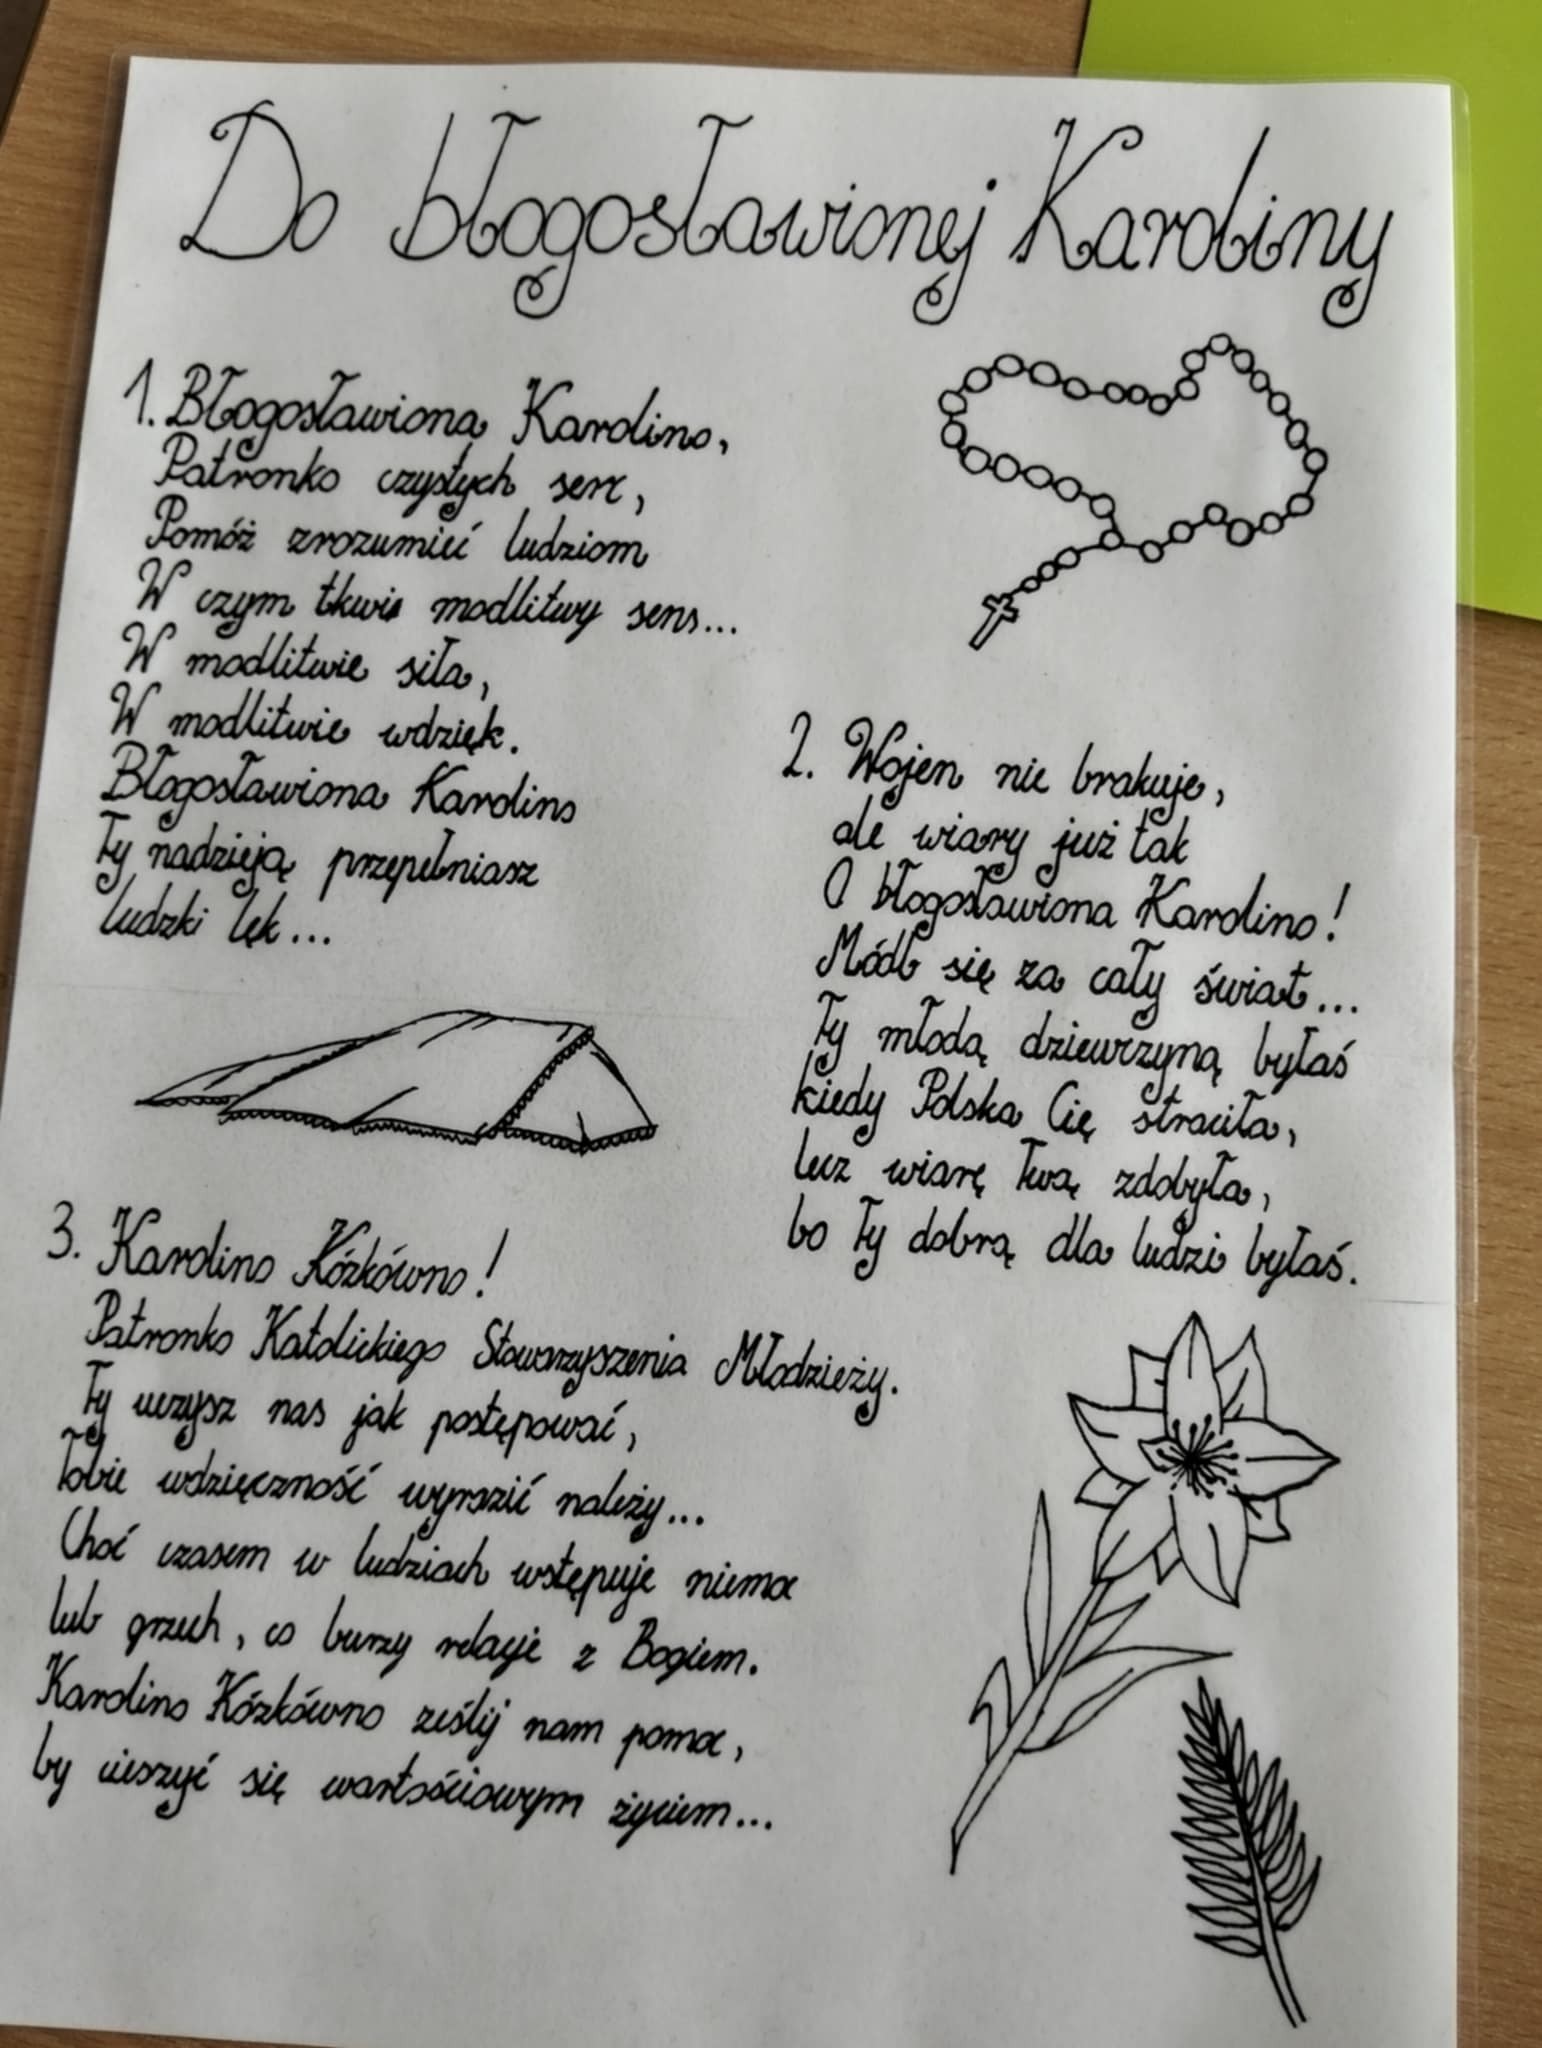 Do błogosławionej Karoliny
1. Błogosławiona Karolino,
Patronko czystych serc,
Pomóż zrozumieć ludziom
W czym tkwi modlitwy sens...
W modlitwie siła,
W modlitwie wdzięk.
Błogosławiona Karolino
Ty nadzieją przepełniasz
ludzki lęk...
2. Wojen nie brakuje,
ale wiary już tak
O błogosławiona Karolino!
Módl się za cały świat...
Ty młodą dziewczyną byłaś
kiedy Polska Cię straciła,
lecz wiarę Twą zdobyła,
bo Ty dobrą dla ludzi byłaś.
3. Karolino Kózkówno!
Patronko Katolickiego Stowarzyszenia Młodzieży.
Ty uczysz nas jak postępować,
Tobie wdzięczność wyrazić należy...
Choć czasem w ludziach wstępuje niemoc
lub grzech, co burzy relacje z Bogiem.
Karolino Kózkówno ześlij nam pomoc,
by cieszyć się wartościowym życiem...